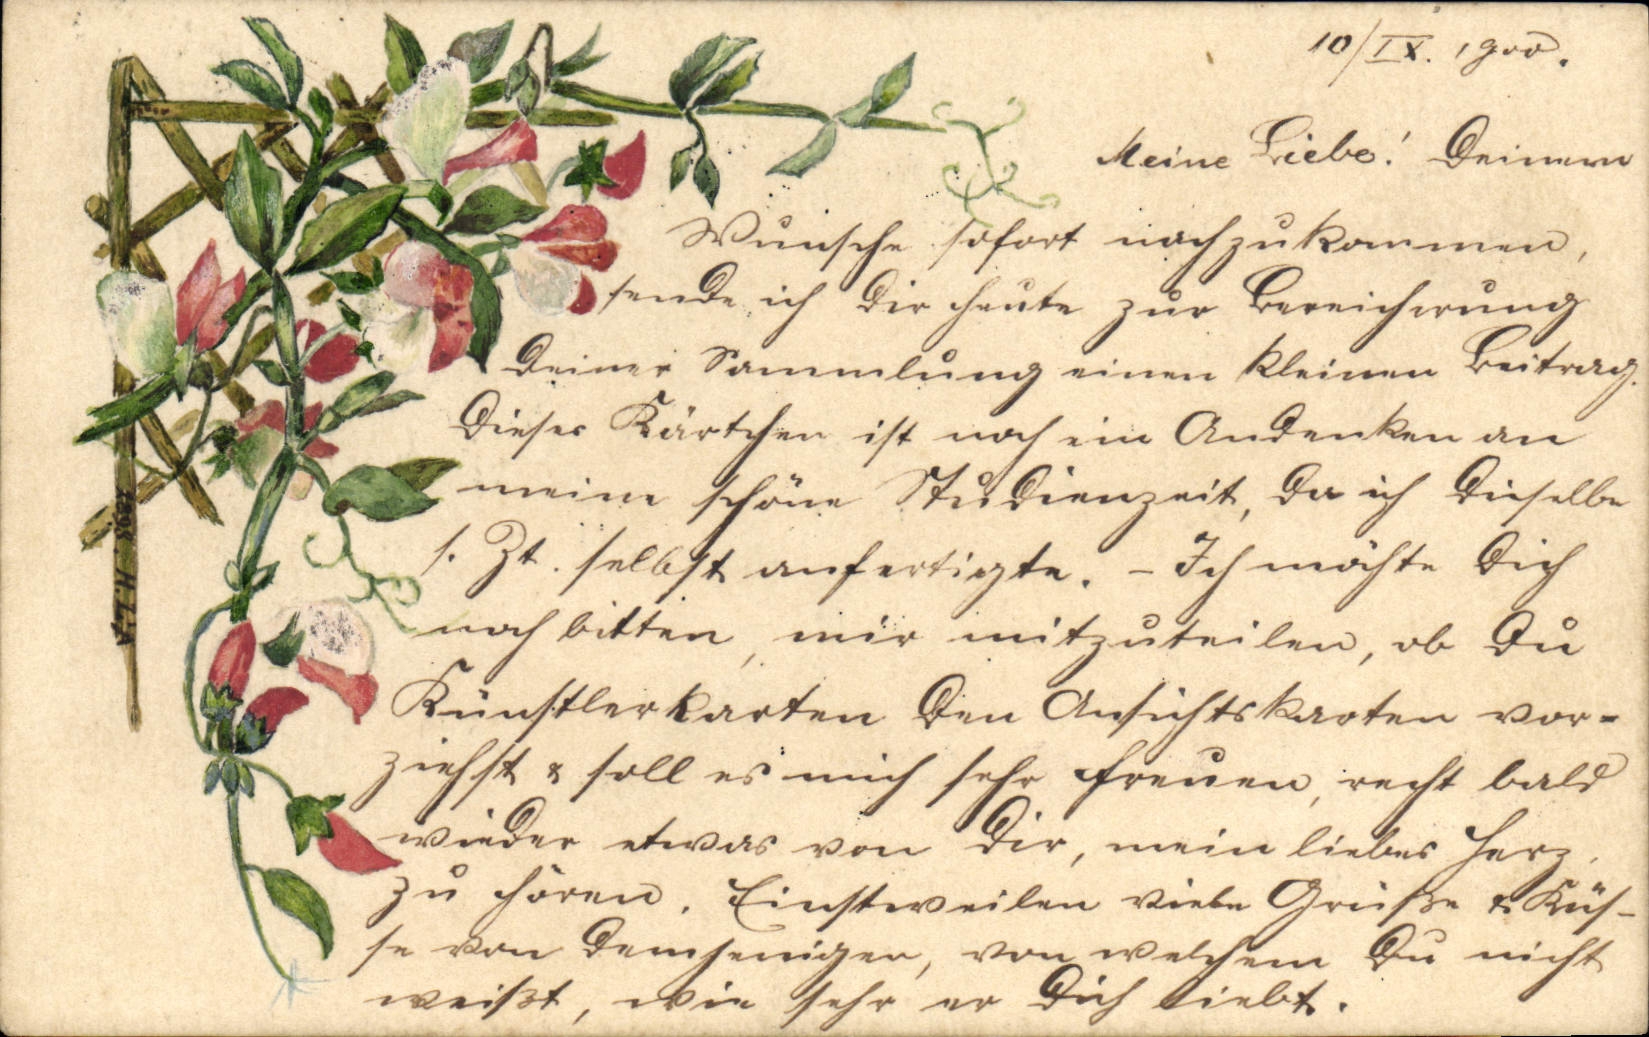 10/IX. 1900.
Meine Liebe! Deinem
Wunsche sofort nachzukommen,
sende ich Dir heute zur Bereicherung
Deiner Sammlung einen kleinen Beitrag.
Dieses Kärtchen ist noch ein Andenken an
meine schöne Studienzeit, da ich dieselbe
s. Zt. selbst anfertigte. – Ich möchte Dich
noch bitten, mir mitzuteilen, ob Du
Künstlerkarten den Ansichtskarten vor-
ziehst & soll es mich sehr freuen, recht bald
wieder etwas von Dir, mein liebes Herz,
zu hören. Einstweilen viele Grüße & Küs-
se von demjenigen, von welchem Du nicht
weißt, wie sehr er Dich liebt.
1898. H. L.